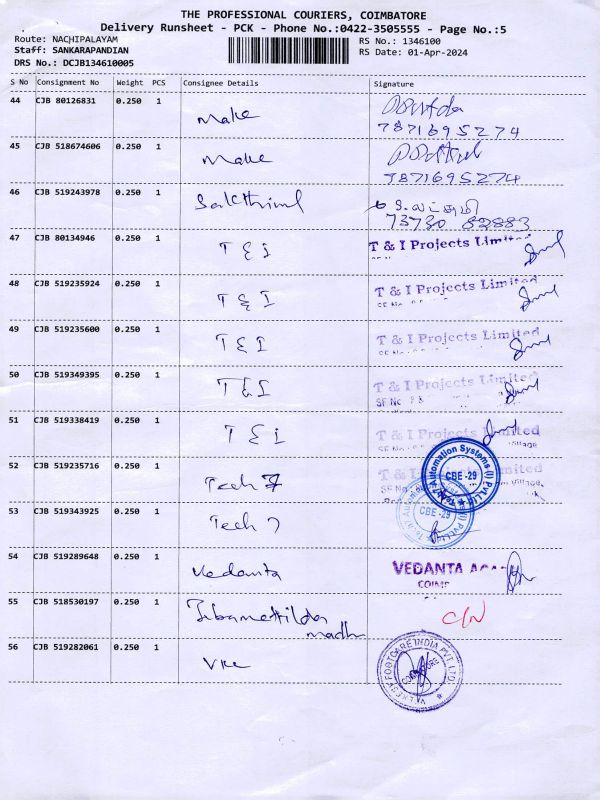 THE PROFESSIONAL COURIERS, COIMBATORE
Delivery Runsheet - PCK - Phone No.:0422-3505555 - Page No.:5
Route: NACHIPALAYAM
RS No.: 1346100
Staff: SANKARAPANDIAN
RS Date: 01-Apr-2024
DRS No.: DCJB134610005
S No Consignment No Weight PCS Consignee Details Signature
44 CJB 80126831 0.250 1 Make
7871695274
45 CJB 518674606 0.250 1 Make
7871695274
46 CJB 519243978 0.250 1
73730 82883
47 CJB 80134946 0.250 1 T & I T & I Projects Limited
48 CJB 519235924 0.250 1 T & I T & I Projects Limited
49 CJB 519235600 0.250 1 T & I T & I Projects Limited
50 CJB 519349395 0.250 1 T & I T & I Projects Limited
SF No
51 CJB 519338419 0.250 1 T & I T & I Projects Limited
Village
52 CJB 519235716 0.250 1 Tech 7 T & I Projects Limited
Automation Systems (I) Pvt.Ltd
CBE -29
53 CJB 519343925 0.250 1 Tech 7
CBE -29
54 CJB 519289648 0.250 1 Vedanta VEDANTA
55 CJB 518530197 0.250 1
madhu
56 CJB 519282061 0.250 1 VKC
FOOTCARE INDIA PVT. LTD.
COIMBATORE